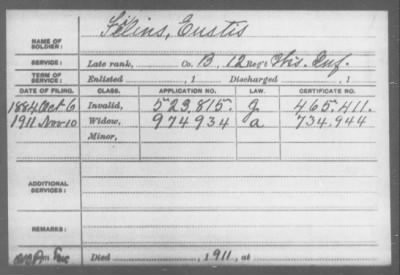 NAME OF SOLDIER: Filins, Eustis
SERVICE: Late rank, Co. B, 12 Reg't Ohio Inf.
TERM OF SERVICE: Enlisted , 1 Discharged , 1
DATE OF FILING. CLASS. APPLICATION NO. LAW. CERTIFICATE NO.
1884 Oct 6 Invalid, 523,815. g. 465.411.
1911 Nov 10 Widow, 974934 a 734.944
Minor,
ADDITIONAL SERVICES:
REMARKS:
Died , 1911, at